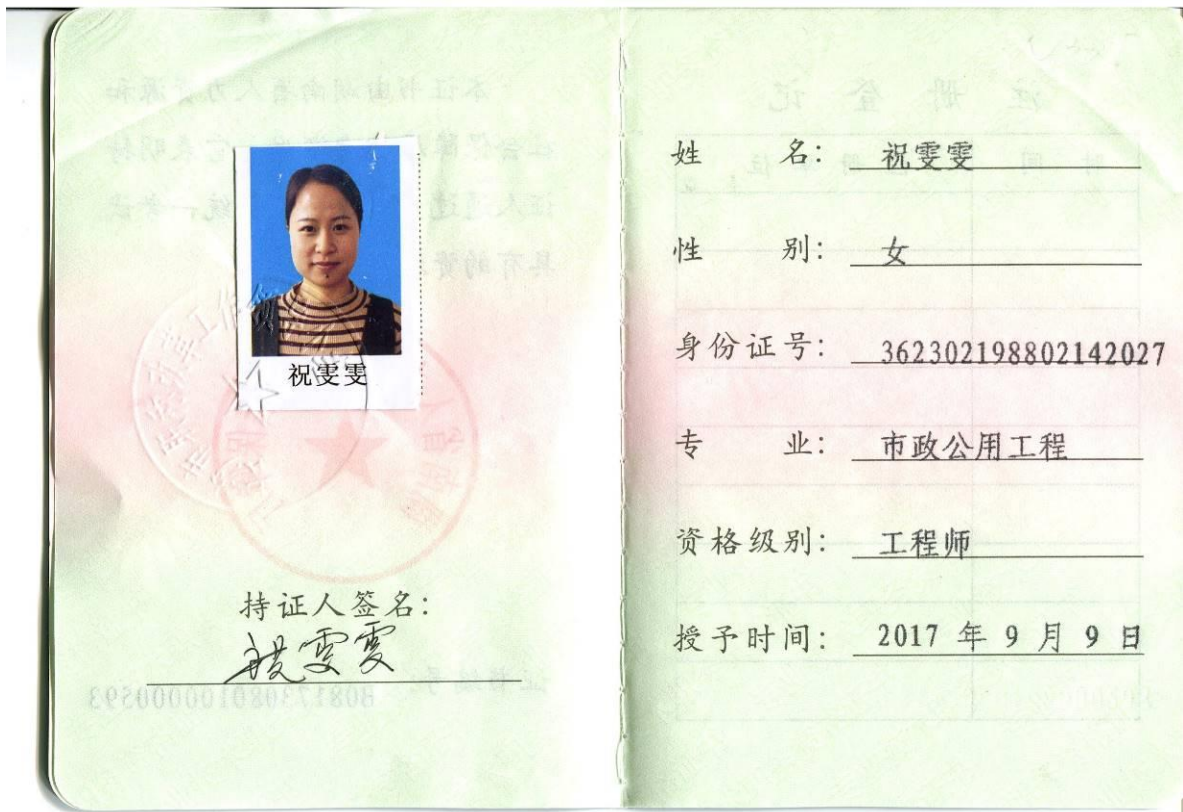 祝雯雯
持证人签名:
祝雯雯
姓 名: 祝雯雯
性 别: 女
身份证号: 362302198802142027
专 业: 市政公用工程
资格级别: 工程师
授予时间: 2017 年 9 月 9 日